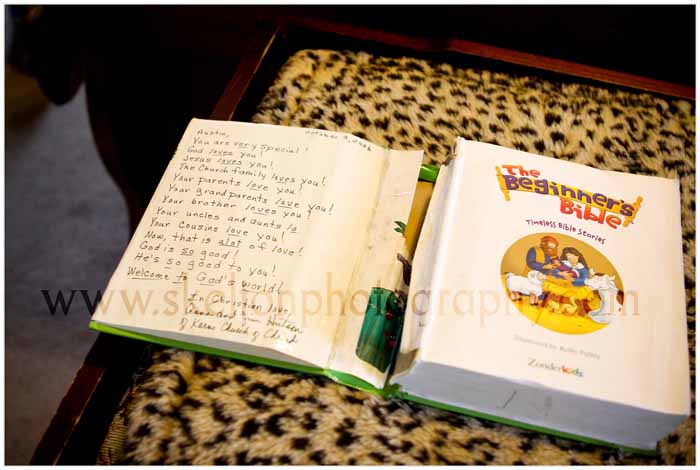 October 9,
Austin,
You are very special!
God loves you!
Jesus loves you!
The Church family loves you!
Your parents love you!
Your grandparents love you!
Your brother loves you!
Your uncles and aunts lo
Your cousins love you!
Now, that is alot of love!
God is so good!
He's so good to you!
Welcome to God's world!
In Christian love,
and
of Karns Church of Christ
The
Beginner's
Bible
Timeless Bible Stories
Illustrated by Kelly Pulley
Zonderkidz